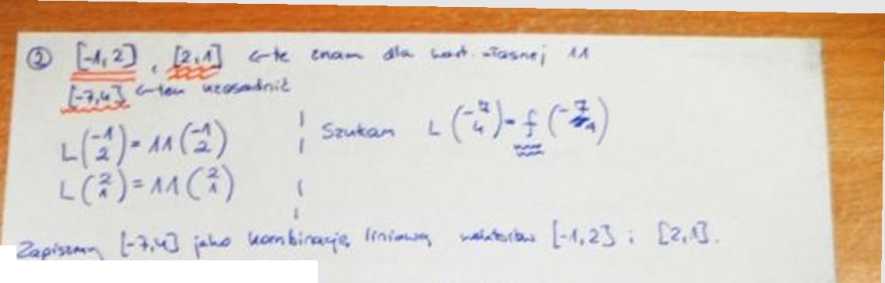 ② [-1,2], [2,1] ← te znam dla wart. własnej 11
[-7,4] ← ten uzasadnić
L(-1 2) = 11(-1 2)
L(2 1) = 11(2 1)
Szukam L(-7 4) = f(-7 4)
Zapiszmy [-7,4] jako kombinację liniową wektorów [-1,2] i [2,1].